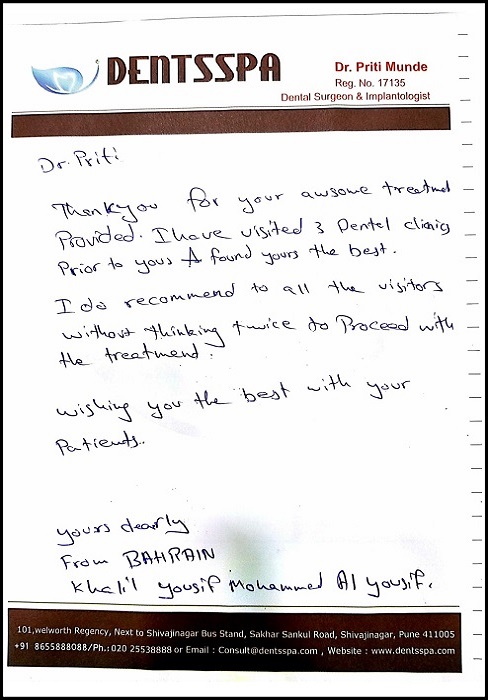 DENTSSPA
Dr. Priti Munde
Reg. No. 17135
Dental Surgeon & Implantologist
Dr. Priti
Thankyou for your awsome treatmed
Provided. I have visited 3 Dentel clinics
Prior to yous & found yours the best.
I do recommend to all the visitors
without thinking twice to Proceed with
the treatment.
wishing you the best with your
Patients.
yours dearly
From BAHRAIN
Khalil yousif Mohammed Al yousif.
101,welworth Regency, Next to Shivajinagar Bus Stand, Sakhar Sankul Road, Shivajinagar, Pune 411005
+91 8655888088/Ph.: 020 25538888 or Email : Consult@dentsspa.com , Website : www.dentsspa.com